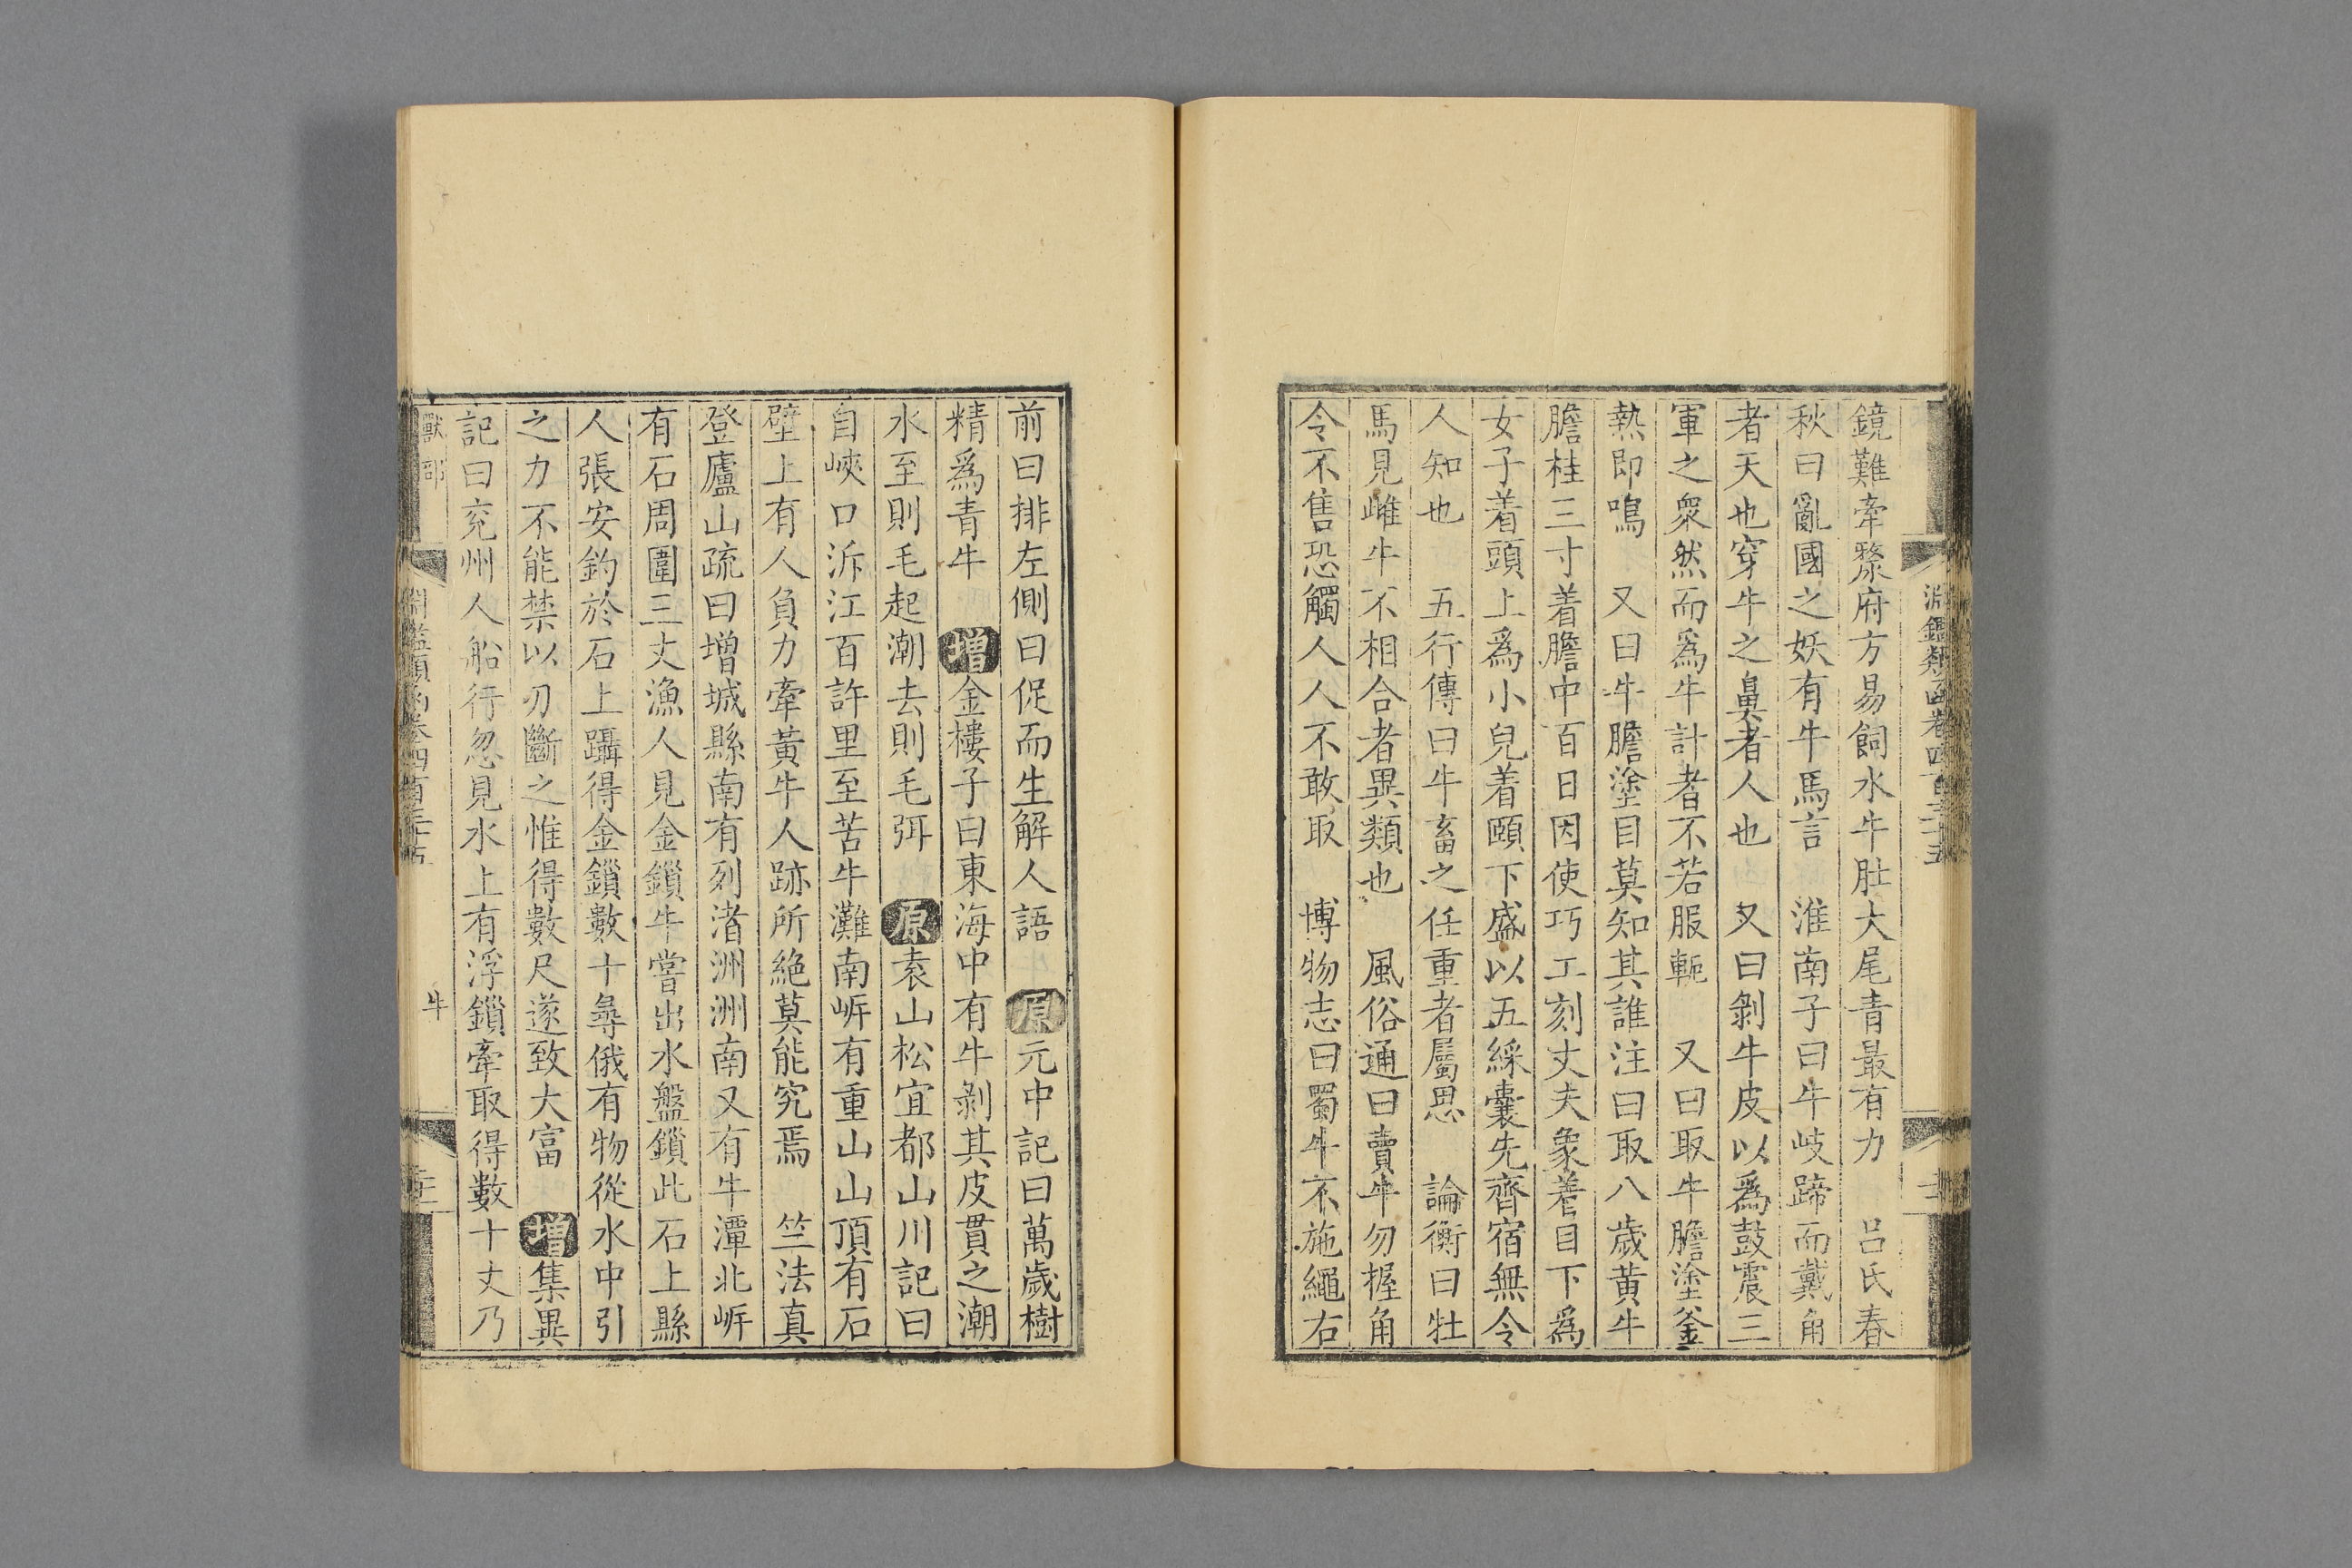 淵鑑類函卷四百三十五
鏡難牽黎府方易飼水牛肚大尾青最有力　呂氏春
秋曰亂國之妖有牛馬言　淮南子曰牛岐蹄而戴角
者天也穿牛之鼻者人也　又曰剝牛皮以爲鼓震三
軍之衆然而爲牛計者不若服軛　又曰取牛膽塗釜
熱即鳴　又曰牛膽塗目莫知其誰注曰取八歲黄牛
膽桂三寸着膽中百日因使巧工刻丈夫象着目下爲
女子着頭上爲小兒着頤下盛以五綵囊先齊宿無令
人知也　五行傳曰牛畜之任重者屬思　論衡曰牡
馬見雌牛不相合者異類也　風俗通曰賣牛勿握角
令不售恐觸人人不敢取　博物志曰蜀牛不施繩右
前曰排左側曰促而生解人語　原元中記曰萬歲樹
精爲青牛　增金樓子曰東海中有牛剝其皮貫之潮
水至則毛起潮去則毛弭　原袁山松宜都山川記曰
自峽口泝江百許里至苦牛灘南㟁有重山山頂有石
壁上有人負力牽黄牛人跡所絶莫能究焉　竺法真
登廬山疏曰增城縣南有列渚洲洲南又有牛潭北㟁
有石周圍三丈漁人見金鎖牛嘗出水盤鎖此石上縣
人張安釣於石上躡得金鎖數十尋俄有物從水中引
之力不能禁以刃斷之惟得數尺遂致大富　增集異
記曰兖州人船行忽見水上有浮鎖牽取得數十丈乃
獸部　牛